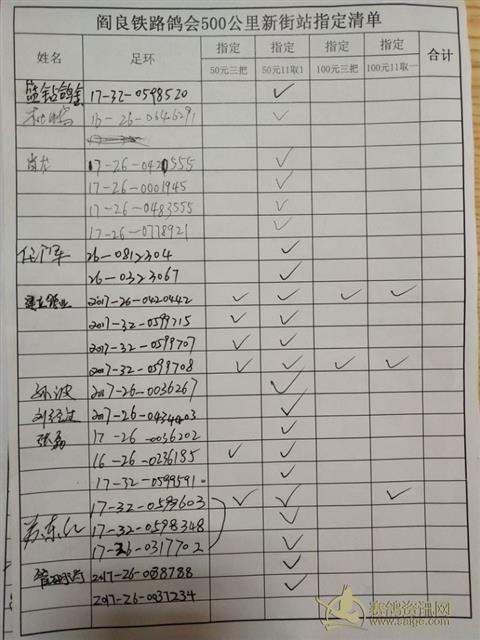 阎良铁路鸽会500公里新街站指定清单
姓名 足环 指定 50元三把 指定 50元11取1 指定 100元三把 指定 100元11取一 合计
蓝钻鸽舍 17-32-0598520 ✓
16-26-0646291 ✓
17-26-0420555 ✓
17-26-0001945 ✓
17-26-0483555 ✓
17-26-0778921 ✓
26-0812304 ✓
26-0323067 ✓
2017-26-0420442 ✓ ✓ ✓ ✓
2017-32-0599715 ✓ ✓
2017-32-0599707 ✓ ✓
2017-32-0599708 ✓ ✓ ✓ ✓
孙波 2017-26-0036267 ✓
2017-26-0434403 ✓
张磊 17-26-0036202 ✓
16-26-0236185 ✓ ✓
17-32-0599591 ✓
17-32-0599603 ✓ ✓ ✓
17-32-0598348 ✓
17-26-0317702 ✓
2017-26-0038788 ✓
2017-26-0037234 ✓
赛鸽资讯网
www.saige.com